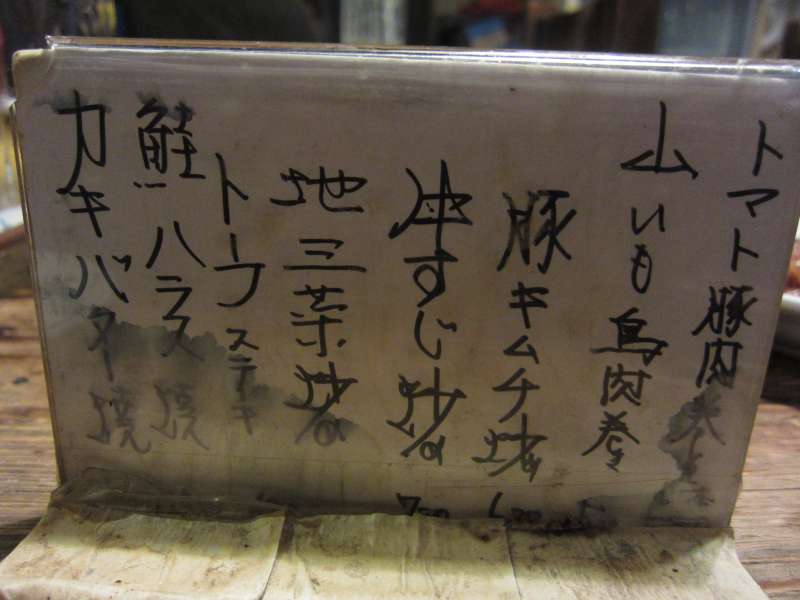 トマト豚肉巻き
山いも鳥肉巻き
豚キムチ炒め 600
牛すじ炒め 700
地三菜炒め
トーフステーキ
鮭ハラス焼
カキバター焼